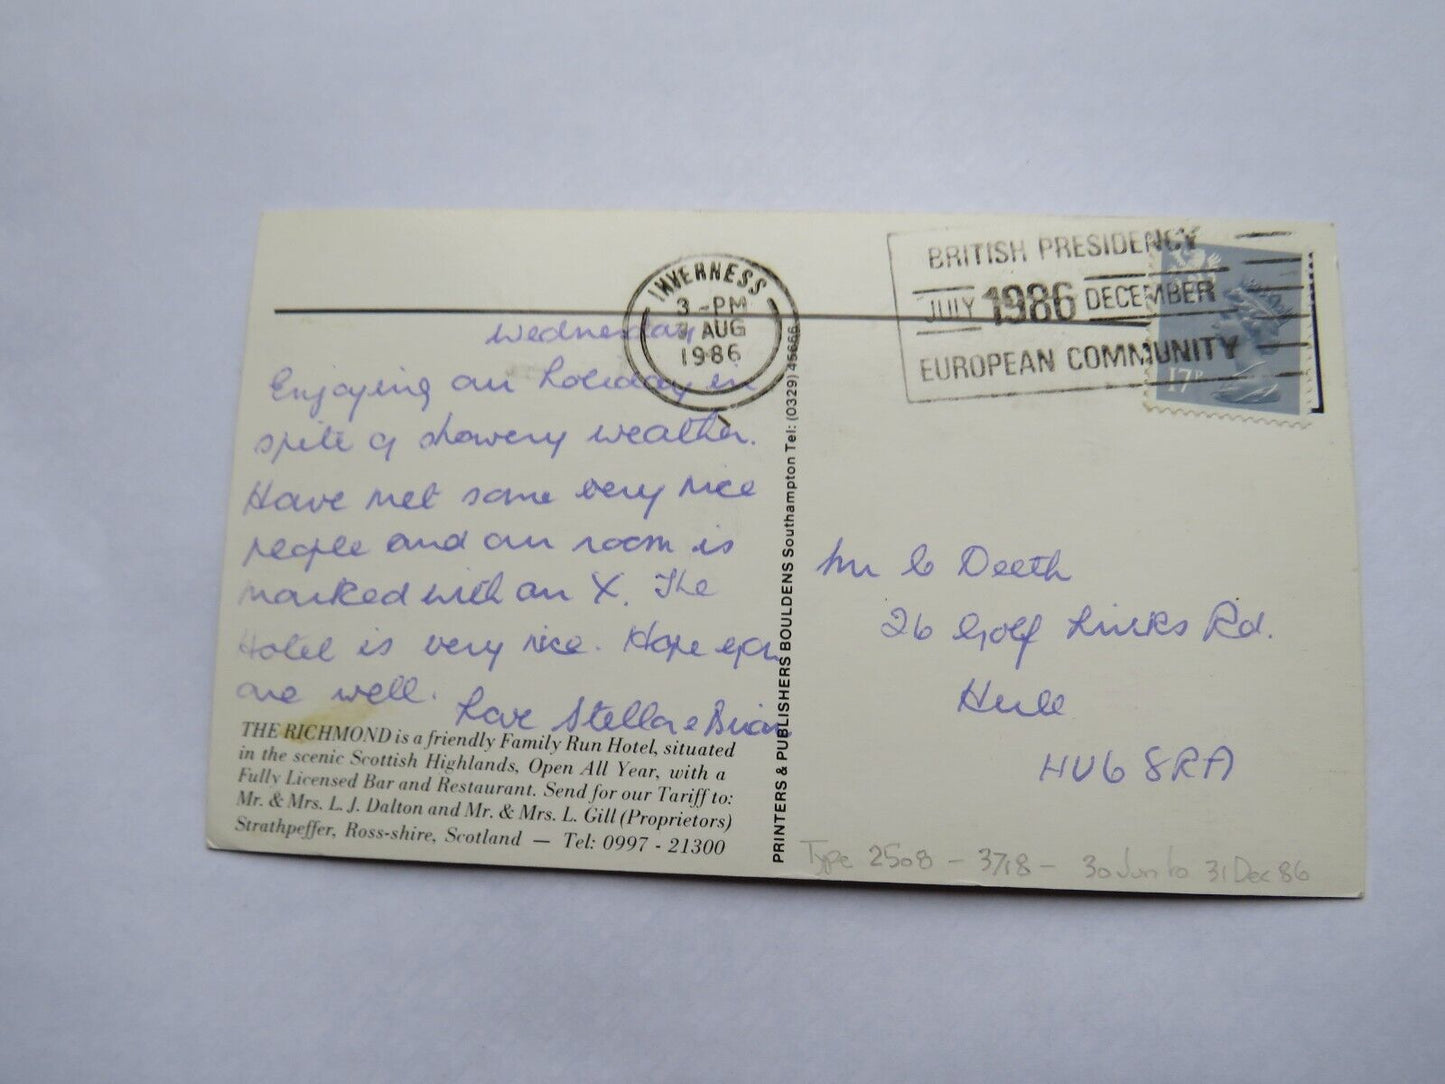 INVERNESS
3-PM
AUG
1986
BRITISH PRESIDENCY
JULY 1986 DECEMBER
EUROPEAN COMMUNITY
17P
Wednesday
Enjoying our holiday in
spite of showery weather.
Have met some very nice
people and our room is
marked with an X. The
Hotel is very nice. Hope you
are well.
Love Stella & Brian
THE RICHMOND is a friendly Family Run Hotel, situated
in the scenic Scottish Highlands, Open All Year, with a
Fully Licensed Bar and Restaurant. Send for our Tariff to:
Mr. & Mrs. L. J. Dalton and Mr. & Mrs. L. Gill (Proprietors)
Strathpeffer, Ross-shire, Scotland — Tel: 0997 - 21300
PRINTERS & PUBLISHERS BOULDENS Southampton Tel: (0329) 45666
Mr C Deeth
26 Golf Links Rd.
Hull
HU6 8RA
Type 2508 - 3718 - 30 Jun to 31 Dec 86